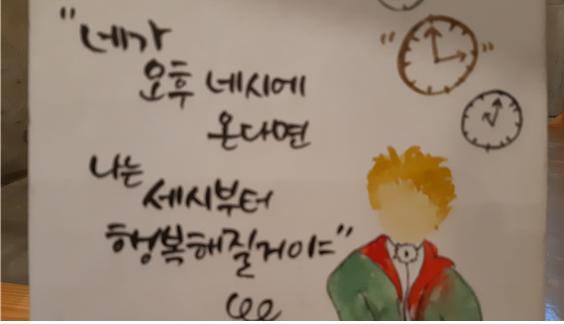 "네가
오후 네시에
온다면
나는
세시부터
행복해질거야"